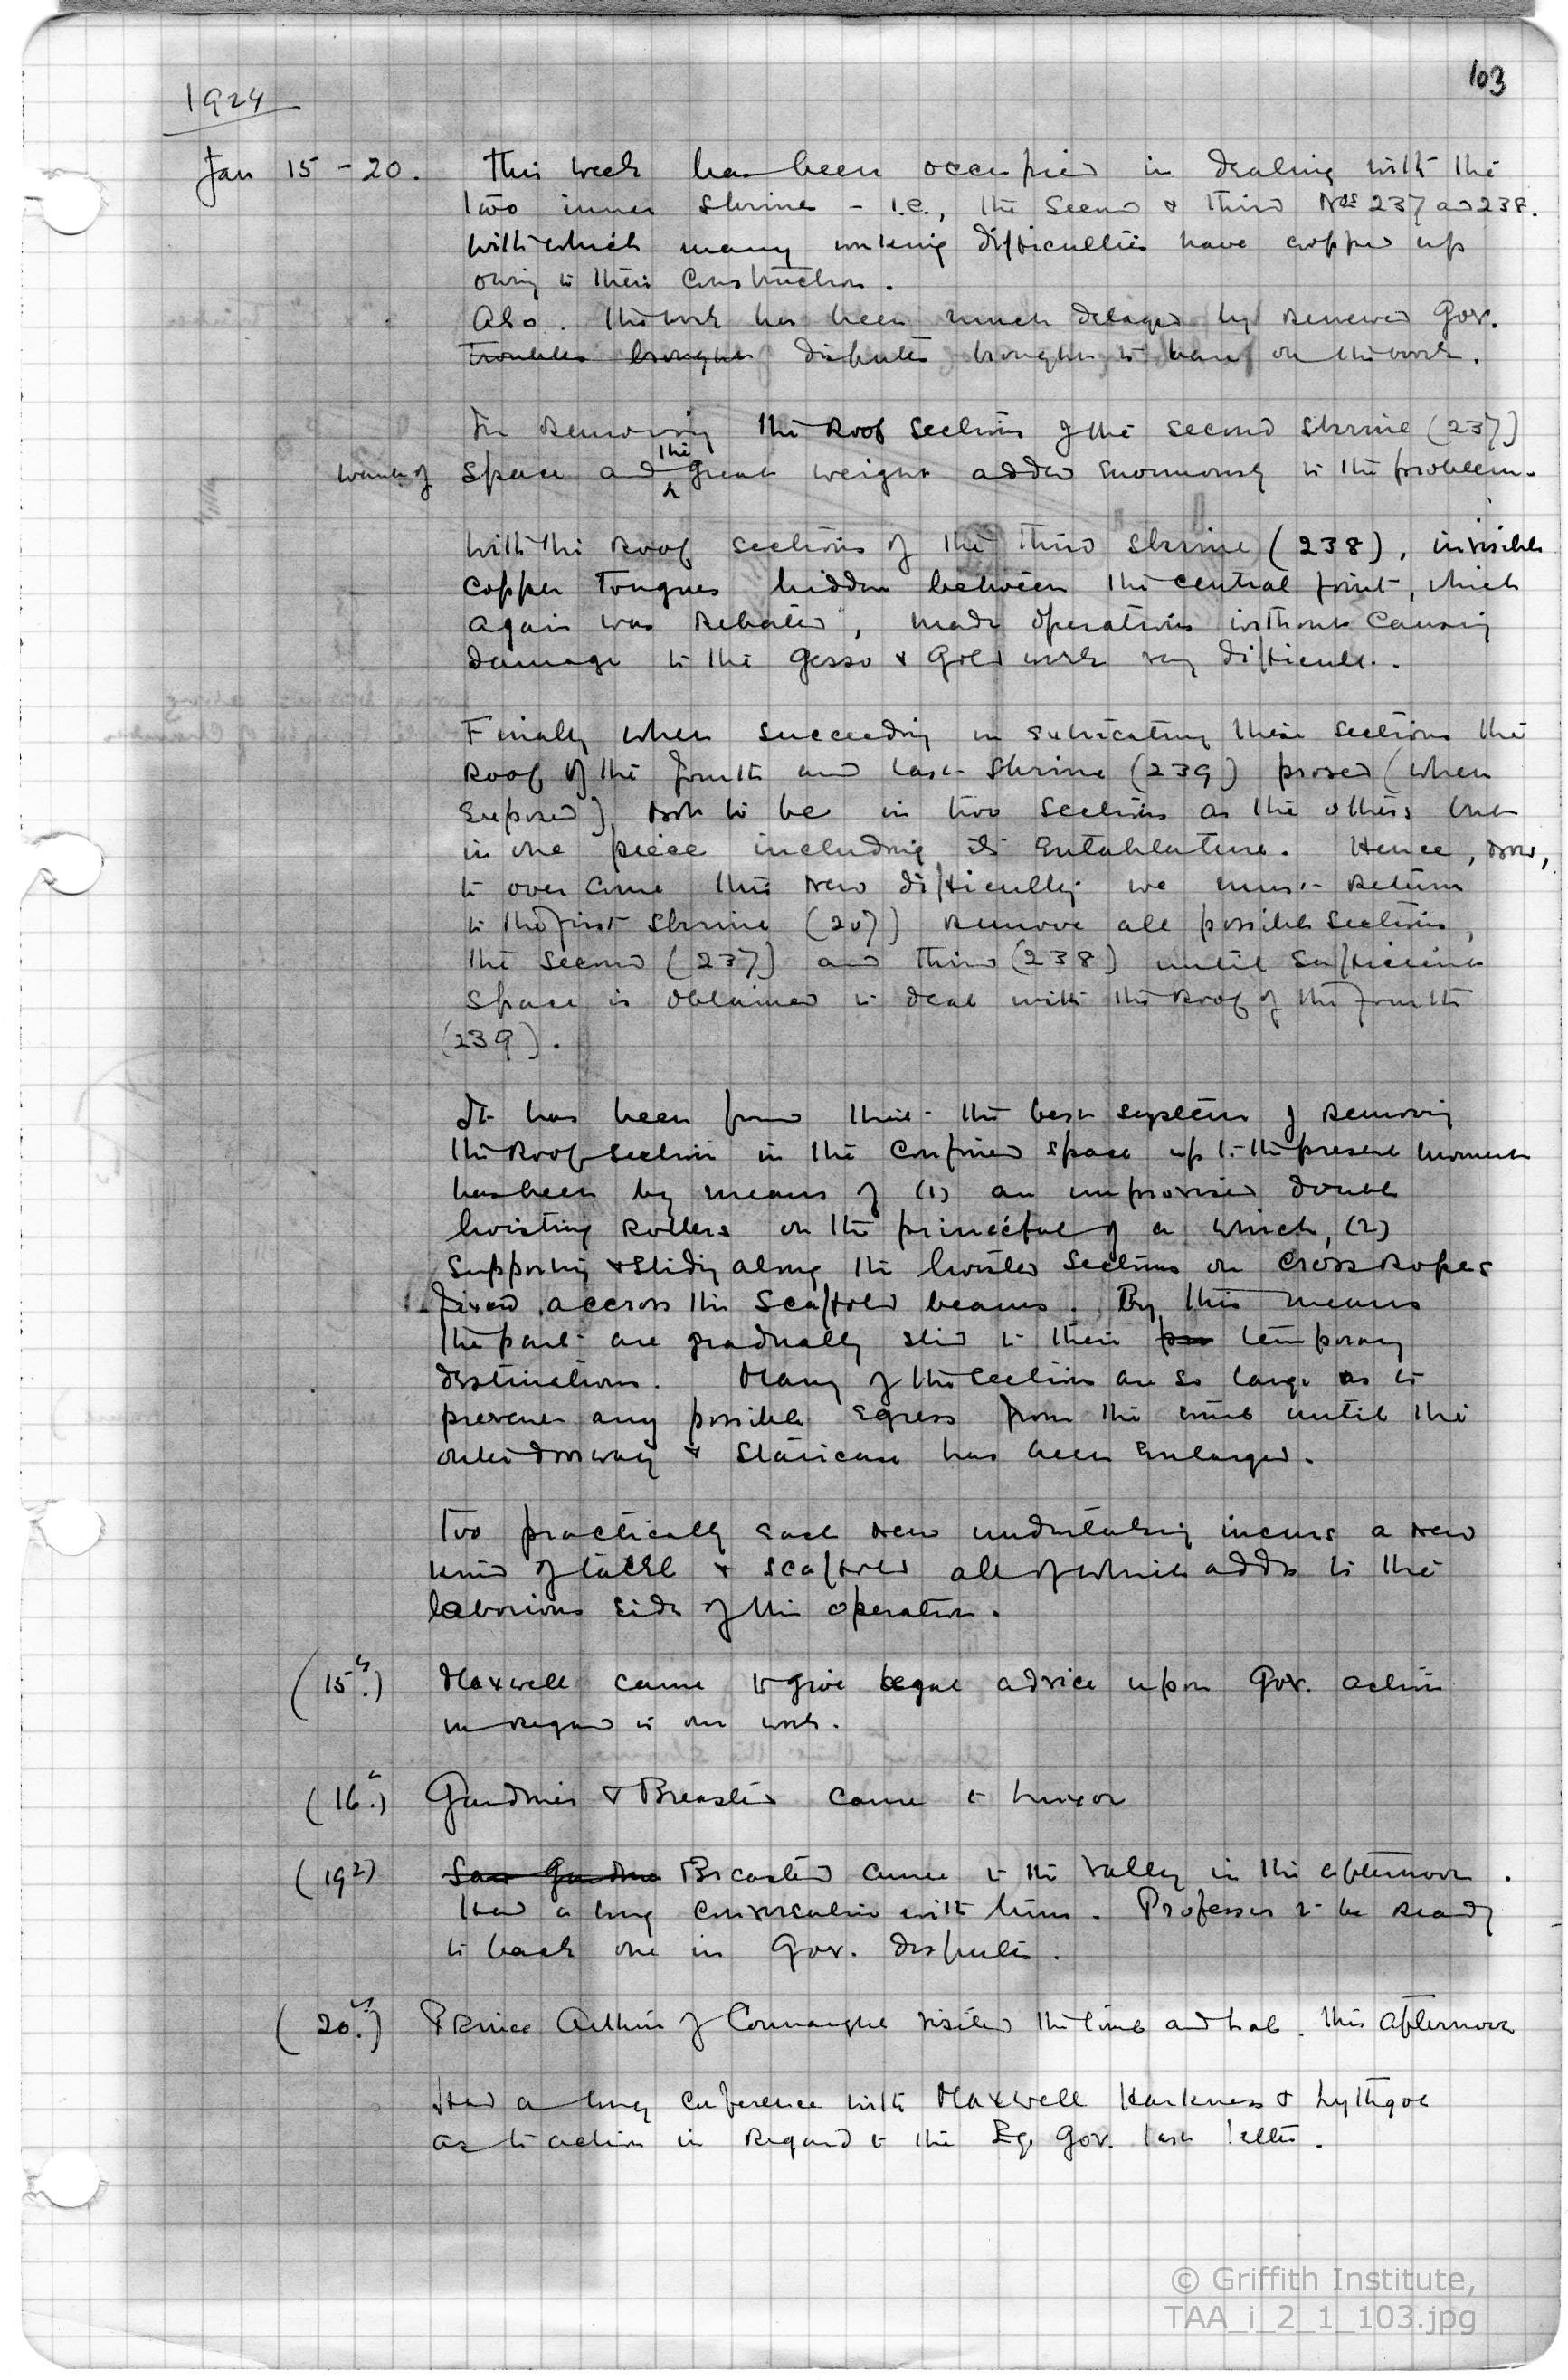 103
1924
Jan 15 - 20. This week has been occupied in dealing with the
two inner shrines - i.e., the second & third Nos 237 and 238.
with which many working difficulties have cropped up
owing to their construction.
Also. the work has been much delayed by renewed Gov.
troubles brought disputes brought to bear on the work.
In removing the Roof sections of the second shrine (237)
want of space and the great weight added enormously to the problem.
With the Roof sections of the third shrine (238), invisible
copper tongues hidden between the central joint, which
again was rebated, made operations without causing
damage to the gesso & gold work very difficult.
Finally when succeeding in extricating these sections the
Roof of the fourth and last shrine (239) proved (when
exposed) not to be in two sections as the others but
in one piece including its entablature. Hence, now,
to over come this new difficulty we must return
to the first shrine (207) remove all possible sections,
the second (237) and third (238) until sufficient
space is obtained to deal with the Roof of the fourth
(239).
It has been found that the best system of removing
the Roof section in the confined space up to the present moment
has been by means of (1) an improvised double
hoisting rollers on the principal of a which, (2)
supporting & sliding along the hoisted sections on cross ropes
fixed accross the scaffold beams. By this means
the parts are gradually slid to their temporary
destinations. Many of the sections are so large as to
prevent any possible egress from the tomb until the
outer doorway & staircase has been enlarged.
Too practically each new undertaking incurs a new
kind of tackle & scaffold all of which adds to the
laborious side of the operation.
(15th.) Maxwell came to give legal advice upon Gov. action
in regard to our work.
(16th.) Gardiner & Breasted came to Luxor
(19th) Saw Gardiner Breasted came to the valley in the afternoon.
Had a long conversation with him. Professes to be ready
to back one in Gov. disputes.
(20th.) Prince Arthur of Connaught visited the tomb and lab. this afternoon
Had a long conference with Maxwell Harkness & Lythgoe
as to action in regard to the Eg. Gov. last letter.
© Griffith Institute,
TAA_i_2_1_103.jpg